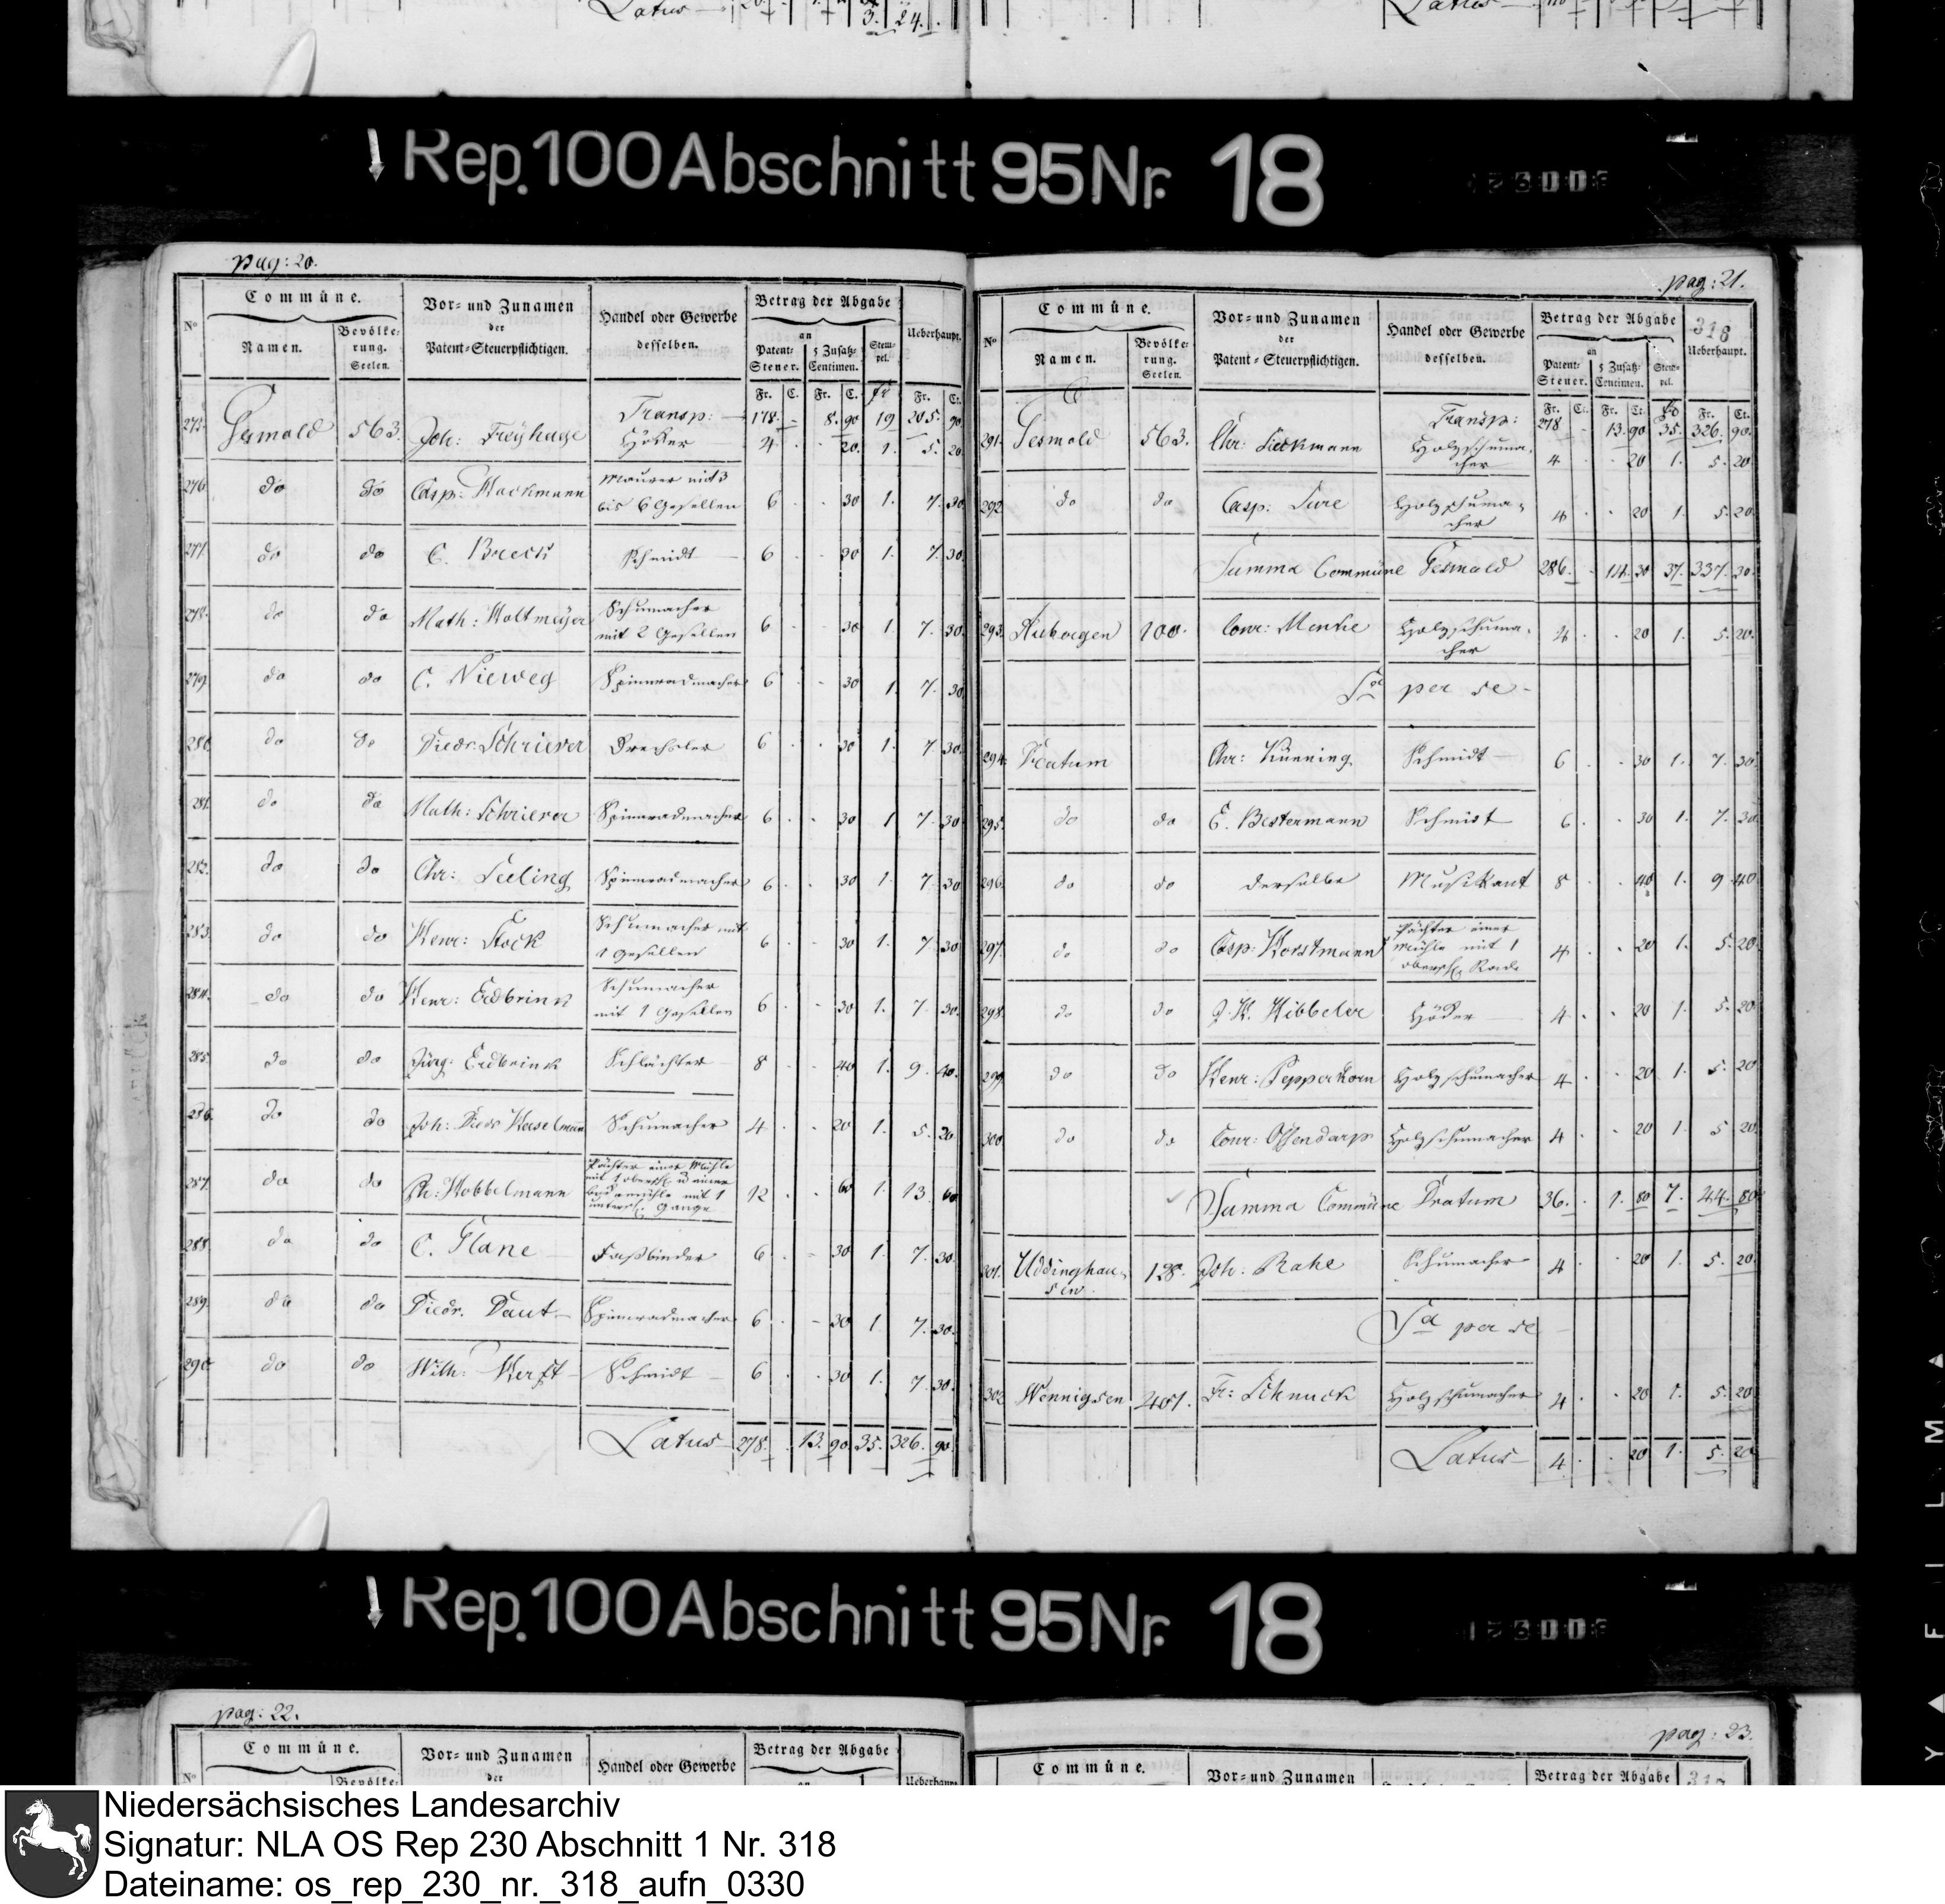 Latus 3. 24.
Latus
Rep. 100 Abschnitt 95 Nr. 18
pag: 20.
No Commüne. Vor- und Zunamen der Patent-Steuerpflichtigen. Handel oder Gewerbe desselben. Betrag der Abgabe Ueberhaupt.
Namen. Bevölkerung. Seelen. an Patent-Steuer. 5 Zusatz-Centimen. Stempel.
Fr. C. Fr. C. Fr Fr. Ct.
Transp: 178. - 8. 90 19 205. 90
275. Gesmold 563. Joh: Freÿhage Höker 4 20. 1. 5. 20
276 do do Casp: Hackmann Maurer mit 3 bis 6 Gesellen 6 30 1. 7. 30
277. do do C. Breck Schmidt 6 30 1. 7. 30
278. do do Math: Holtmeÿer Schumacher mit 2 Gesellen 6 30 1 7. 30.
279. do do C. Nieweg Spinnradmacher 6 30 1. 7. 30
280. do do Diedr: Schriever Drechsler 6 30 1. 7. 30
281. do do Math: Schriever Spinnradmacher 6 30 1 7. 30
282. do do Chr: Seeling Spinnradmacher 6 30 1. 7. 30
283. do do Henr: Stock Schumacher mit 1 Gesellen 6 30 1. 7. 30
284. do do Henr: Erdbrink Schumacher mit 1 Gesellen 6 30 1. 7. 30.
285. do do Jürg: Erdbrink Schlächter 8 40 1. 9. 40.
286. do do Joh: Diedr Haselmann Schumacher 4 20 1. 5. 20.
287. do do Ph: Hobbelmann Pächter einer Mühle mit 1 obersch. u einer Bockemühle mit 1 untersch. Gange 12 60 1. 13. 60
288. do do C. Plane Faßbinder 6 30 1. 7. 30.
289. do do Diedr. Daut Spinnradmacher 6 30 1. 7. 30.
290 do do Wilh: Herft Schmidt 6 30 1. 7 30.
Latus 278. 13. 90 35. 326. 90.
pag: 21.
318
No Commüne. Vor- und Zunamen der Patent-Steuerpflichtigen. Handel oder Gewerbe desselben. Betrag der Abgabe Ueberhaupt.
Namen. Bevölkerung. Seelen. an Patent-Steuer. 5 Zusatz-Centimen. Stempel.
Fr. Ct. Fr. Ct. Fr Fr. Ct.
Transp: 278 13. 90 35. 326. 90.
291. Gesmold 563. Chr: Lieckmann Holzschumacher 4 20 1. 5. 20
292. do do Casp: Lure Holzschumacher 4 20 1. 5. 20
Summa Commüne Gesmold 286. 14. 30 37. 337. 30.
293. 100. Conr: Menke Holzschumacher 4 20 1. 5. 20.
Sa per se
294. Dratum Chr: Künning Schmidt 6 30 1. 7. 30.
295. do do E. Bestermann Schmidt 6 30 1. 7. 30
296. do do derselbe Musikant 8 40 1. 9 40
297. do do Casp: Horstmann Pächter einer Mühle mit 1 obersch. Rade 4 20 1. 5. 20
298. do do J. H. Hibbeler Höcker 4 20 1. 5. 20
299. do do Henr: Pepperkorn Holzschumacher 4 20 1. 5. 20
300. do do Conr: Ossendarp Holzschumacher 4 20 1. 5 20
Summa Commüne Dratum 36. 1. 80 7. 44. 80
301. Uddinghausen 128. Joh: Rahe Schumacher 4 20 1. 5. 20.
Sa per se
302. Wennigsen 401. Fr: Schnuck Holzschumacher 4 20 1. 5. 20
Latus 4 20 1. 5. 20
Rep. 100 Abschnitt 95 Nr. 18
pag: 22.
No Commüne. Vor- und Zunamen der Handel oder Gewerbe Betrag der Abgabe
pag: 23.
Commüne. Vor- und Zunamen Betrag der Abgabe
Niedersächsisches Landesarchiv
Signatur: NLA OS Rep 230 Abschnitt 1 Nr. 318
Dateiname: os_rep_230_nr._318_aufn_0330